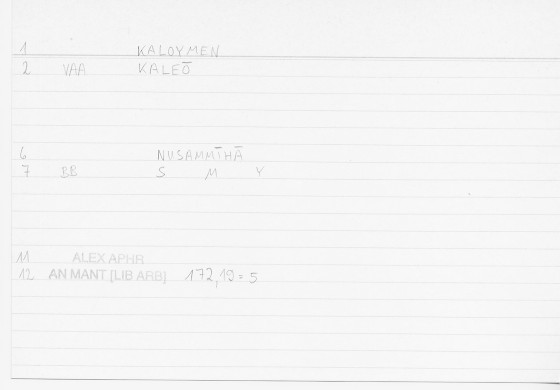 1 KALOYMEN
2 VAA KALEŌ
6 NUSAMMĪHĀ
7 BB S M Y
11 ALEX APHR
12 AN MANT [LIB ARB] 172,19 = 5